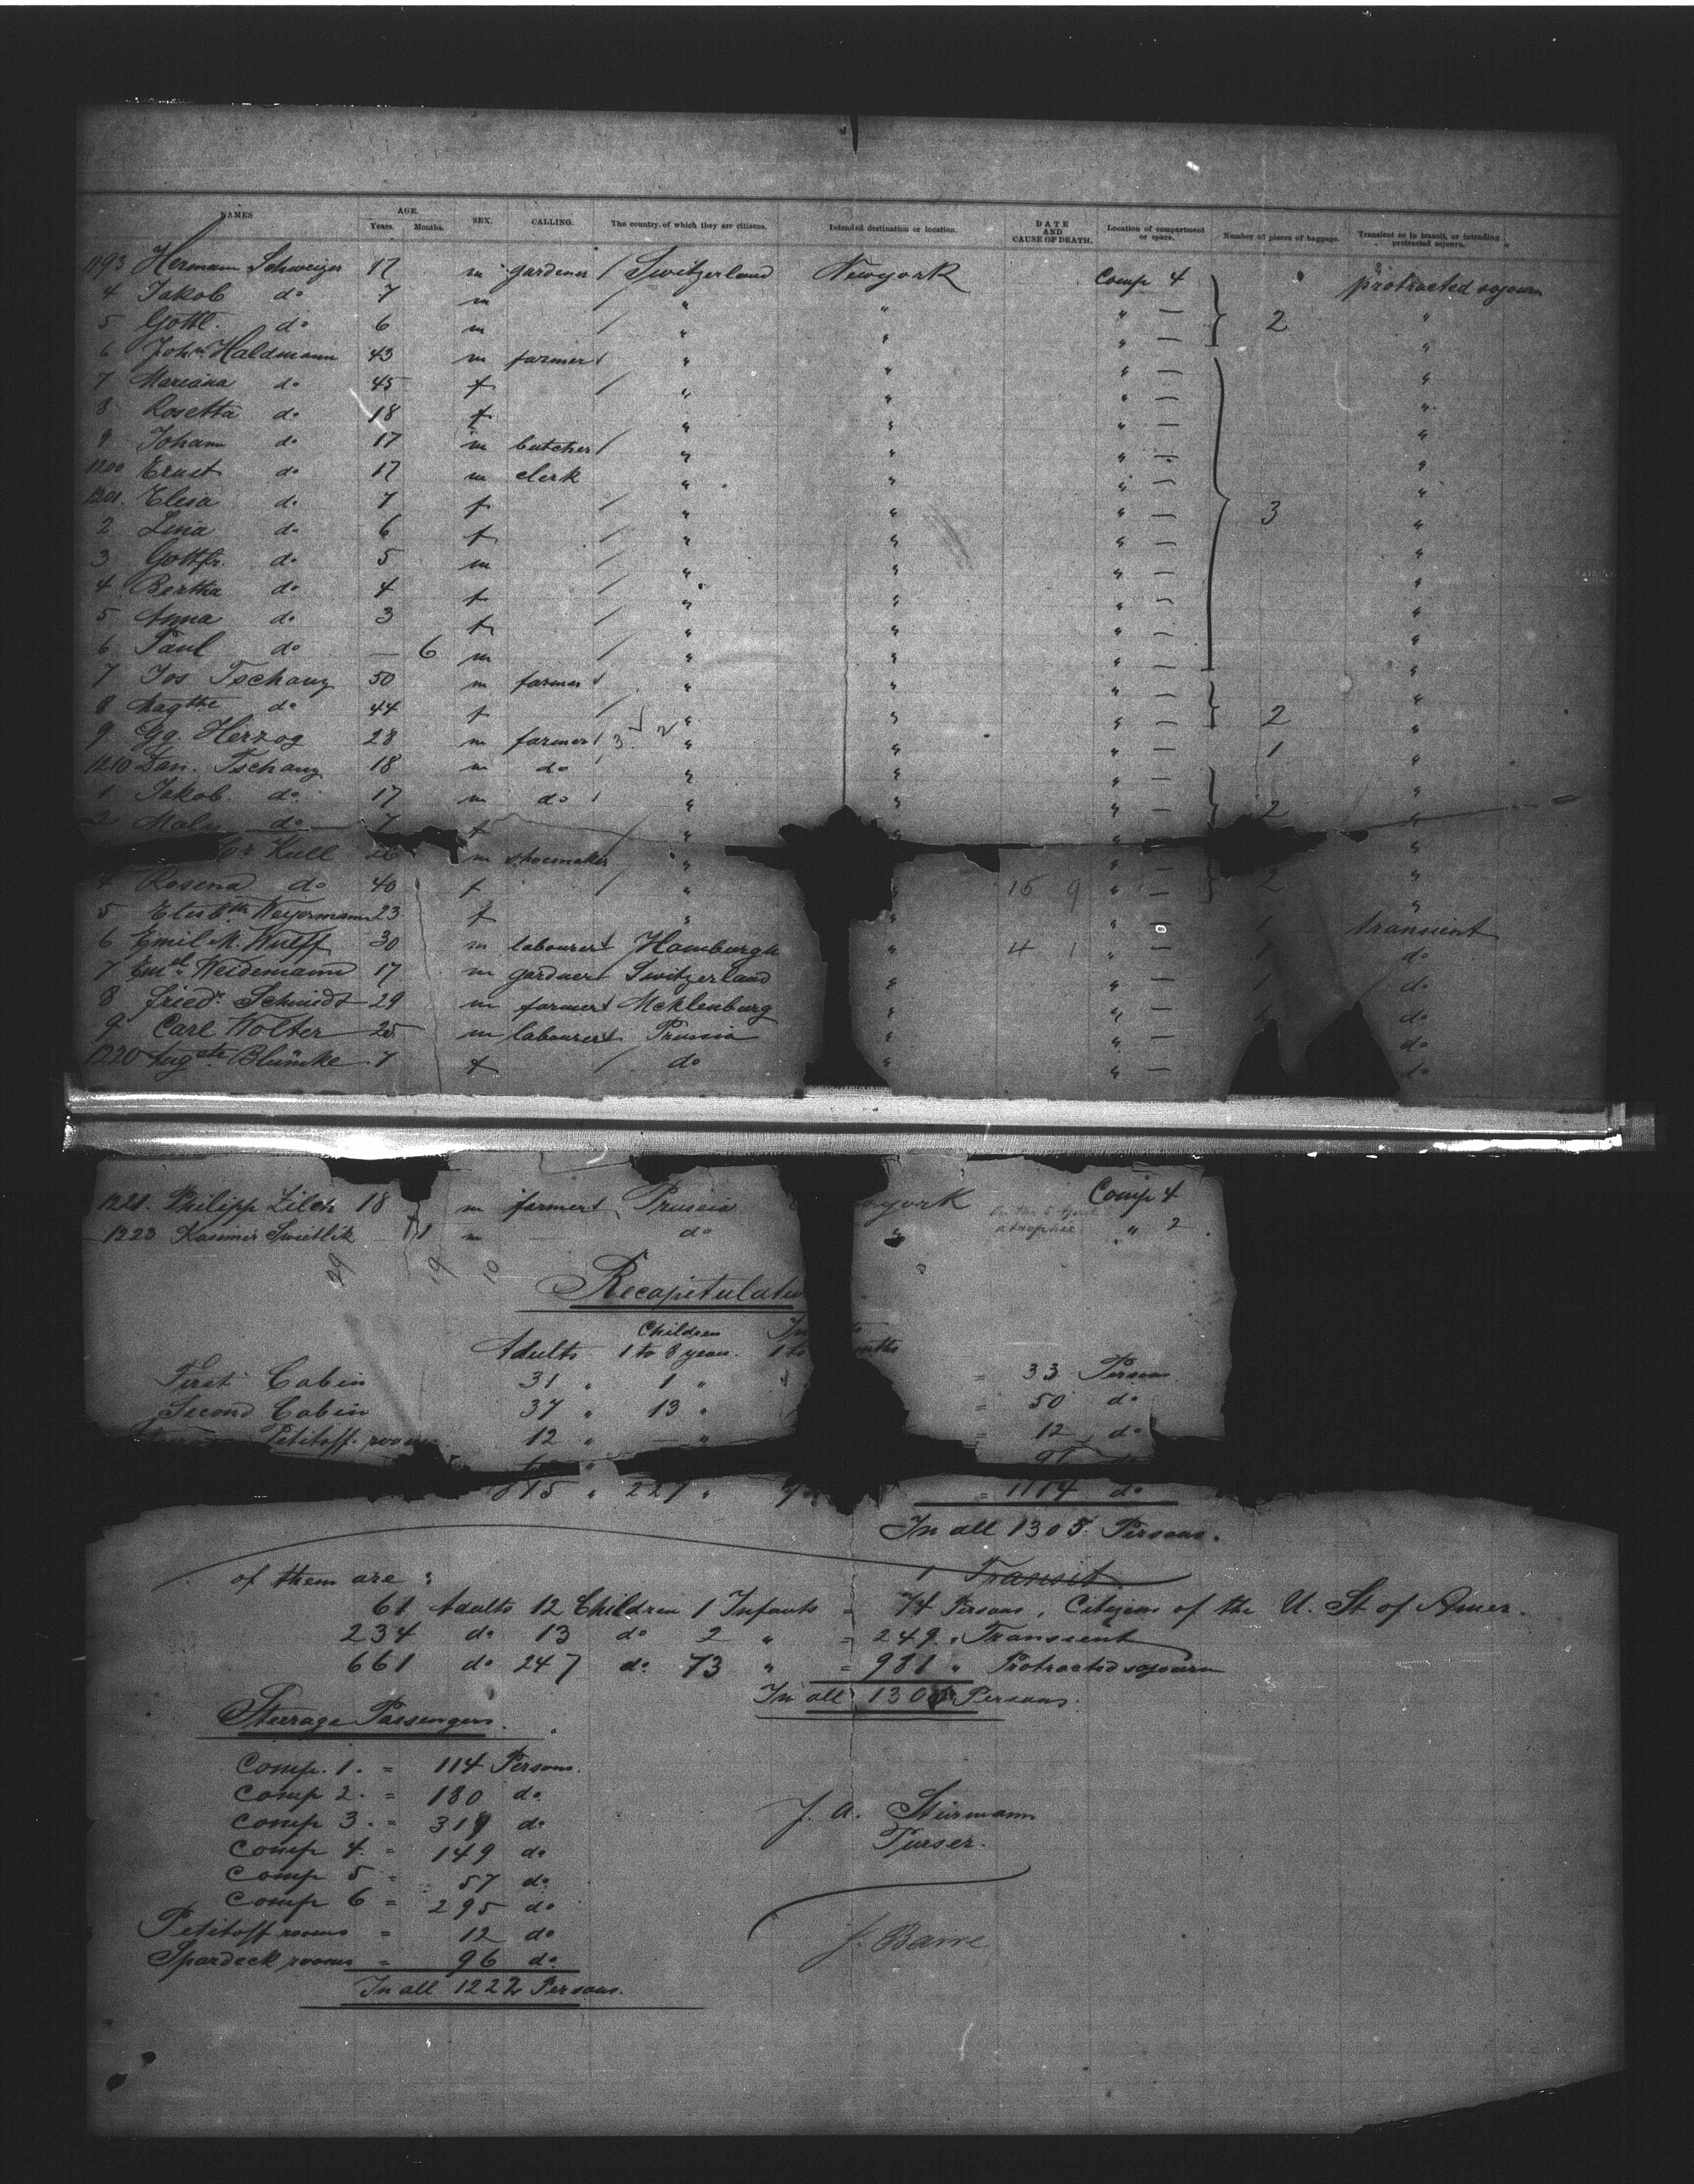 NAMES AGE. Years. Months. SEX. CALLING. The country of which they are citizens. Intended destination or location. DATE AND CAUSE OF DEATH. Location of compartment or space. Number of pieces of baggage. Transient or in transit, or intending protracted sojourn.
1193 Hermann Schweizer 17 m gardener / Switzerland Newyork Comp 4 protracted sojourn
4 Jakob do 7 m / " " " — "
5 Gottl. do 6 m / " " " — 2 "
6 Joh. Haldmann 43 m farmer / " " " — "
7 Mariana do 45 f / " " " — "
8 Rosetta do 18 f " " " — "
9 Johann do 17 m butcher / " " " — "
1200 Ernst do 17 m clerk " " " — "
1201. Elesa do 7 f / " " " — 3 "
2 Lina do 6 f / " " " — "
3 Gottfr. do 5 m / " " " — "
4 Bertha do 4 f / " " " — "
5 Anna do 3 f / " " " — "
6 Paul do — 6 m / " " " — "
7 Jos Tschanz 50 m farmer / " " " — "
8 Magthe do 44 f / " " " — 2 "
9 Gg. Herzog 28 m farmer / 3 2 " " " — 1 "
1210 Dan. Tschanz 18 m do / " " " — "
1 Jakob do 17 m do / " " " — 2 "
2 do 7 f / " " " — "
Kull 26 m shoemaker / " " — "
4 Rosena do 40 f / " " 15 9 " — 2 "
5 Elisbth Weyermann 23 f " " " — 1 transient
6 Emil M. Wulff 30 m labourer / Hamburgh " 4 1 " — 1 do
7 Eml Weidemann 17 m gardner / Switzerland " " — 1 do
8 Friedr. Schmidt 29 m farmer / Mcklenburg " " — do
9 Carl Wolter 25 m labourer / Prussia " " — do
1220 Augste Blümke 7 f / do " " — do
1221. Philipp Zilch 18 m farmer / Prussia york Comp 4
1223 Kasimir Swietlik 11 m do " " 2
29 19 10
Recapitulatio
Children
Adults 1 to 8 years. 1 to onths
First Cabin 31 " 1 " = 33 Persons
Second Cabin 37 " 13 " = 50 do
Petitoff. rooms 12 " — " = 12 do
96
815 " 227 " = 1114 do
In all 1305. Persons.
1 Transit
of them are :
61 Adults 12 Children 1 Infants = 74 Persons, Citizens of the U. St of Amer.
234 do 13 do 2 " = 249 " Transient
661 do 247 do 73 " = 981 " Protracted sojourn
In all 130 Persons.
Steerage Passengers.
Comp. 1. = 114 Persons.
Comp 2. = 180 do
Comp 3. = 319 do
Comp 4. = 149 do
Comp 5 = 57 do
Comp 6 = 295 do
Petitoff rooms = 12 do
Spardeck rooms = 96 do
In all 1222 Persons.
J. A. Stürmann
Purser.
J. Barre